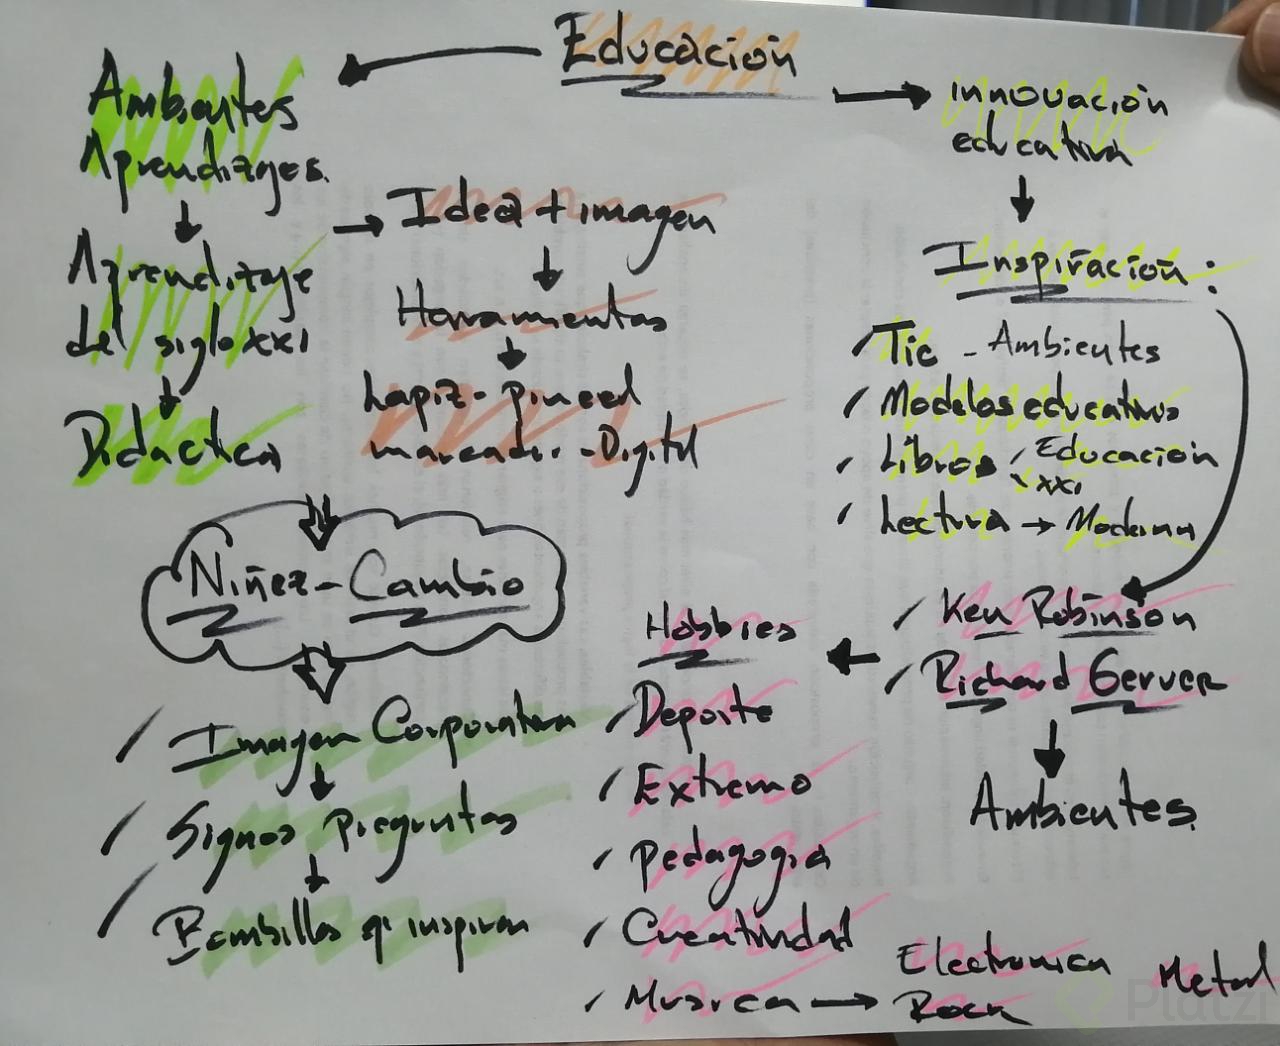 Educación
Ambientes
Aprendizajes.
Aprendizaje
del siglo XXI
Didactica
Idea + imagen
Herramientas
Lapiz - pincel
marcador - Digital
innovación
educativa
Inspiración:
Tic - Ambientes
Modelos educativos
Libros Educación
XXI
Lectura → Moderna
Ken Robinson
Richard Gerver
Ambientes
Niñez - Cambio
Imagen Corporativa
Signos Preguntas
Bombillos q' inspiran
Hobbies
Deporte
Extremo
Pedagogía
Creatividad
Musica → Electronica
Rock
Metal
Platzi